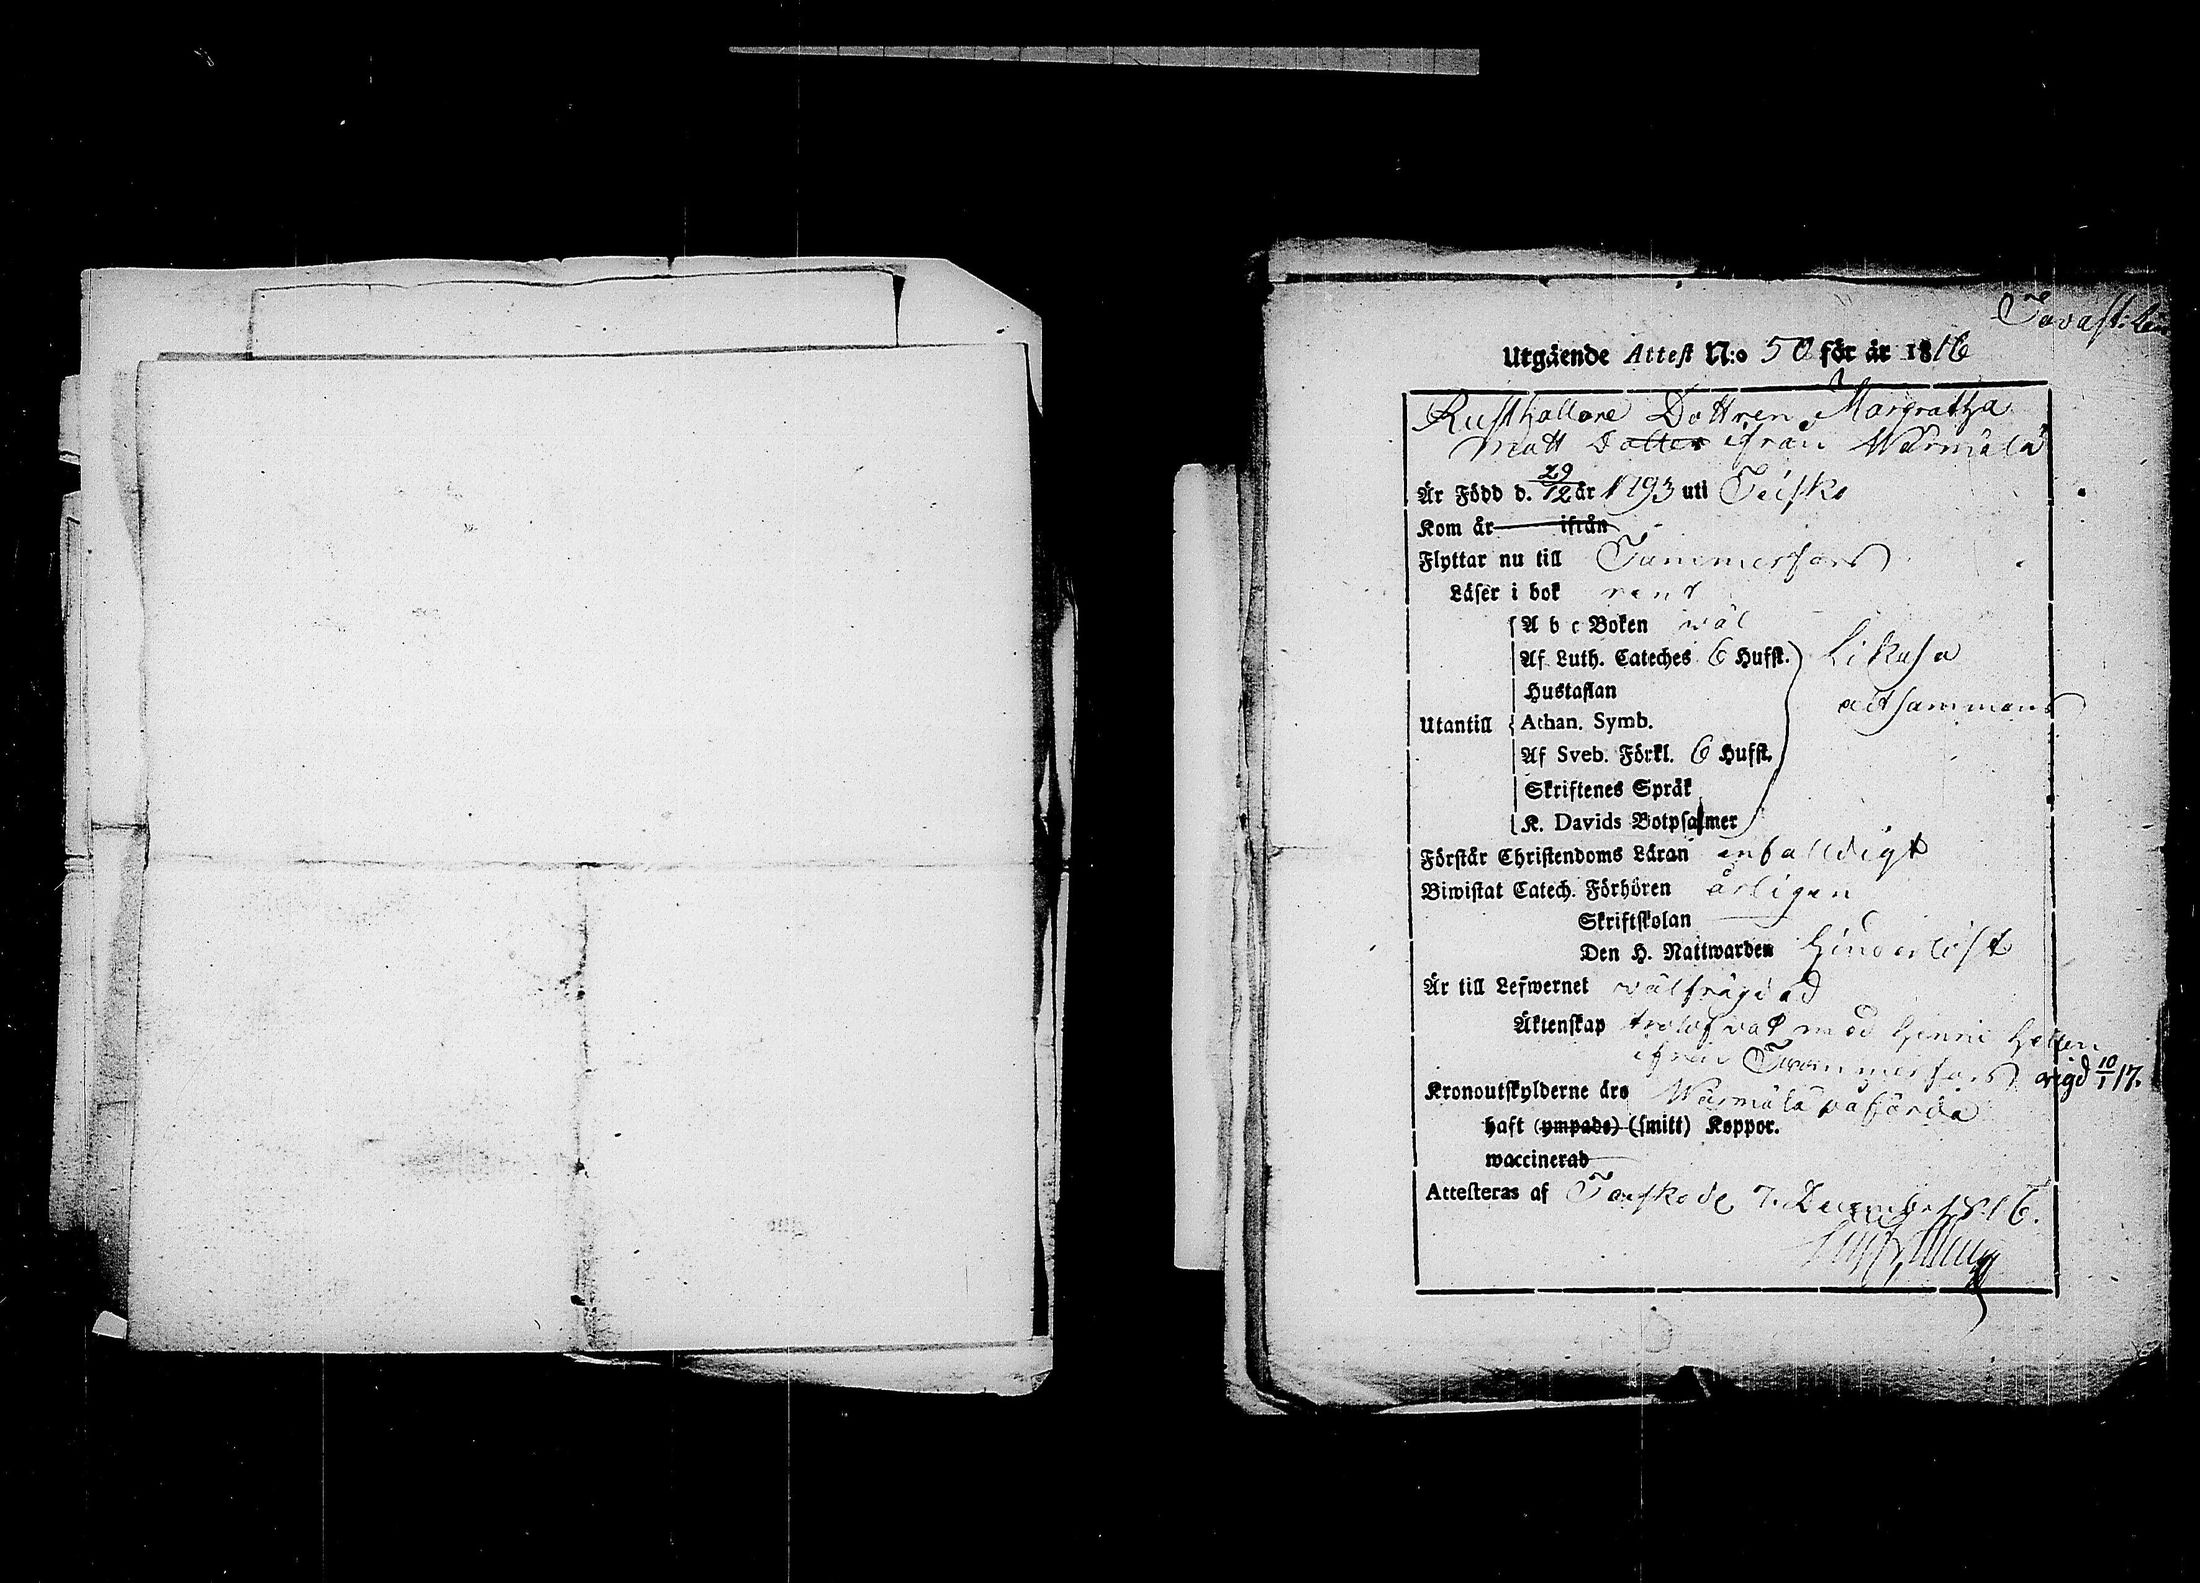 Tavast: Län
Utgående Attest N:o 50 för år 1816
Rusthållare Dottren Margretha
Matt Dotter ifrån Wärmälä
Är Född d. 29/12 år 1793 uti Teisko
Kom år ifrån
Flyttar nu till Tammerfors
Läser i bok rent
A b c Boken wäl
Af Luth. Cateches 6 Hufst. Likaså
Hustaflan
altsammans
Utantill Athan. Symb.
Af Sveb. Förkl. 6 Hufst.
Skriftenes Språk
K. Davids Botpsalmer
Förstår Christendoms Läran enfalldigt
Biwistat Catech. Förhören årligen
Skriftskolan
Den H. Nattwarden hinderlöst
Är till Lefwernet wälfrägdad
Äktenskap trolofvad med Henric
ifrån Tammerfors vigd 10/1 17.
Kronoutskylderne äro Wärmälä påförda
haft (ympade) (smitt) Koppor.
waccinerad
Attesteras af Teisko d. 7. December 1816.